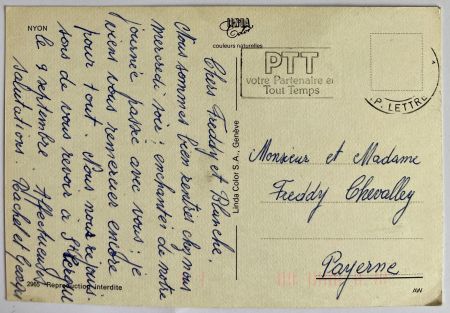 NYON
LINDA
Color
couleurs naturelles
Chers Freddy et Blanche.
Nous sommes bien rentrés chez nous
mercredi soir; enchantés de notre
journée passée avec vous; je
viens vous remercier encore
pour tout. Nous nous réjouis.
sons de vous revoir à
le 9 septembre. Affectueuses
salutations. Rachel et
2965 Reproduction interdite
Linda Color S.A., Genève
PTT
votre Partenaire en
Tout Temps
P. LETTRE
Monsieur et Madame
Freddy Chevalley
Payerne